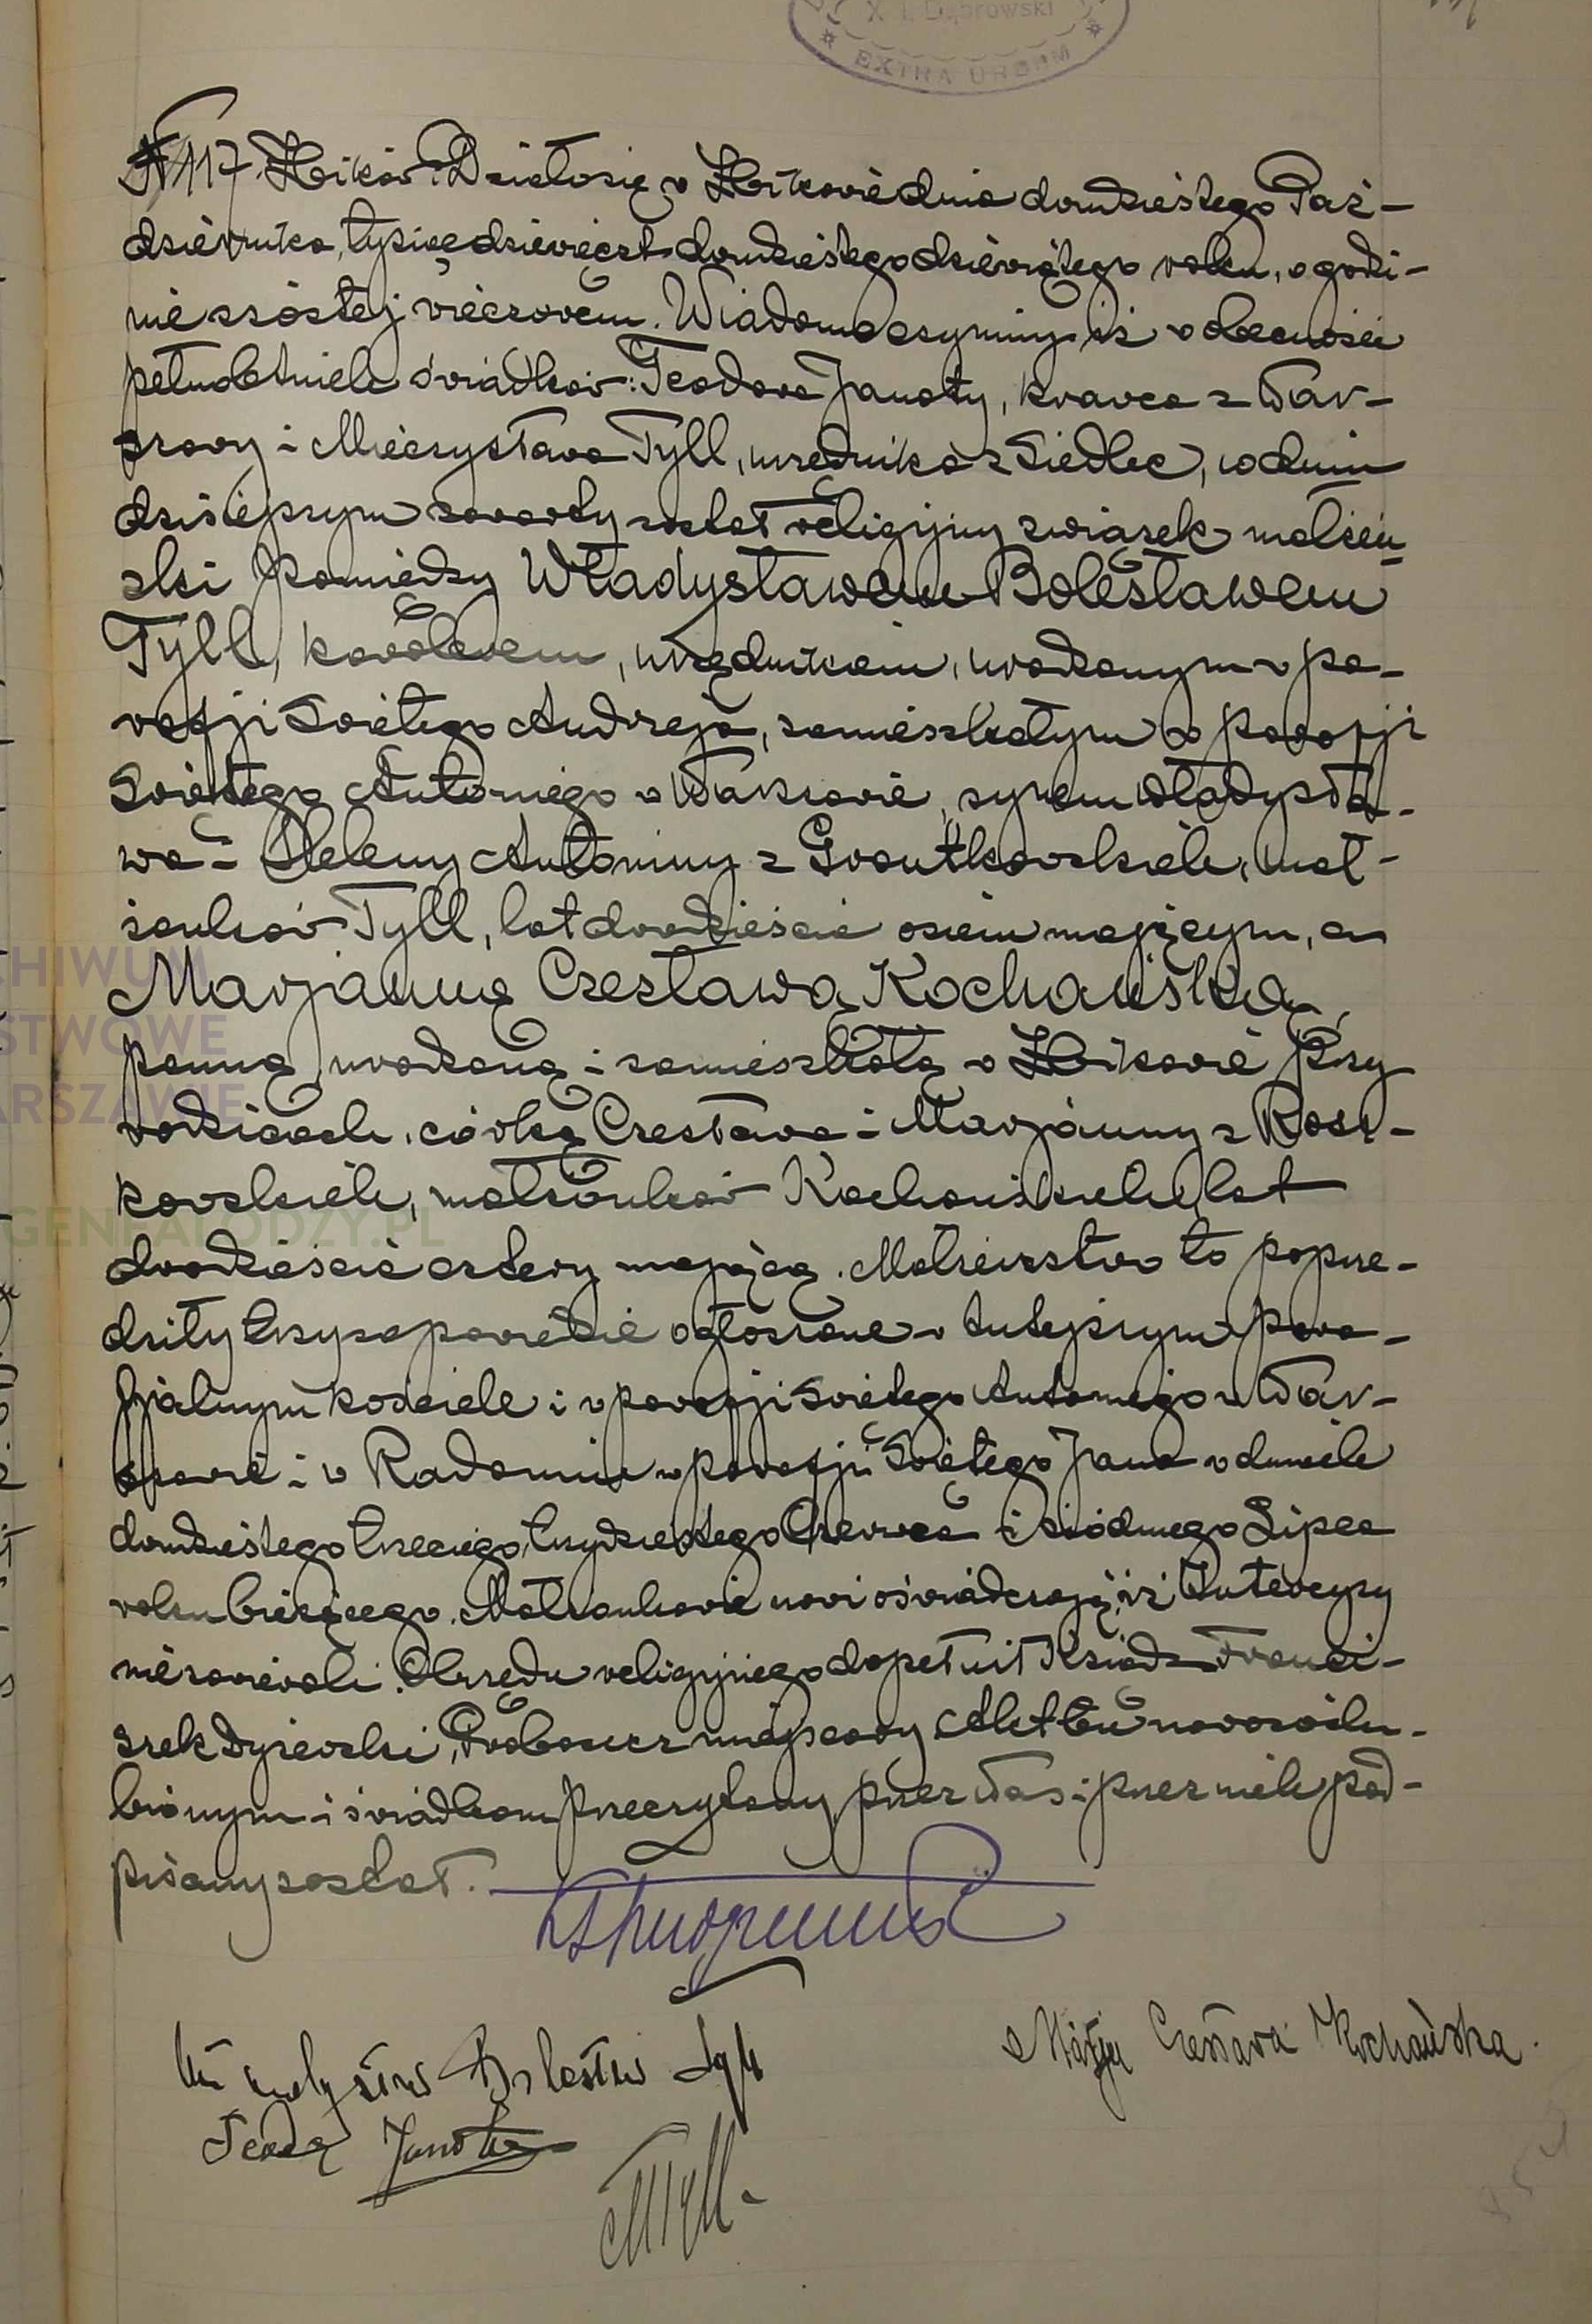 X. F. Dąbrowski
EXTRA URBEM
№ 117. Żbików. Działo się w Żbikowie dnia dwudziestego Paź-
dziernika, tysiąc dziewięćset dwudziestego dziewiątego roku, o godzi-
nie szóstej wieczorem. Wiadomo czynimy, iż w obecności
pełnoletnich świadków: Teodora Janoty, krawca z War-
szawy i Mieczysława Tyll, urzędnika z Siedlec, w dniu
dzisiejszym zawarty został religijny związek małżeń-
ski pomiędzy Władysławem Bolesławem
Tyll, kawalerem, urzędnikiem, urodzonym w pa-
rafji Świętego Andrzeja, zamieszkałym w parafji
Świętego Antoniego w Warszawie, synem Władysła-
wa i Heleny Antoniny z Grontkowskich, mał-
żonków Tyll, lat dwadzieścia osiem mającym, a
Marjanną Czesławą Kochańską,
panną, urodzoną i zamieszkałą w Żbikowie przy
rodzicach, córką Czesława i Marjanny z Rosi-
kowskich, małżonków Kochańskich, lat
dwadzieścia cztery mającą. Małżeństwo to poprze-
dziły trzy zapowiedzie ogłoszone w tutejszym para-
fjalnym kościele i w parafji Świętego Antoniego w War-
szawie i w Radomiu w parafji Świętego Jana w dniach
dwudziestego trzeciego, trzydziestego Czerwca i siódmego Lipca
roku bieżącego. Małżonkowie nowi oświadczają, iż Intercyzy
nie zawierali. Obrzędu religijnego dopełnił Ksiądz Franci-
szek Dyżewski, Proboszcz miejscowy. Akt ten nowozaślu-
bionym i świadkom przeczytany, przez Nas i przez nich pod-
pisany został.
Władysław Bolesław Tyll
Marja Czesława Kochańska
Teodor Janota
M Tyll
ARCHIWUM
PAŃSTWOWE
WARSZAWIE
GENEALODZY.PL